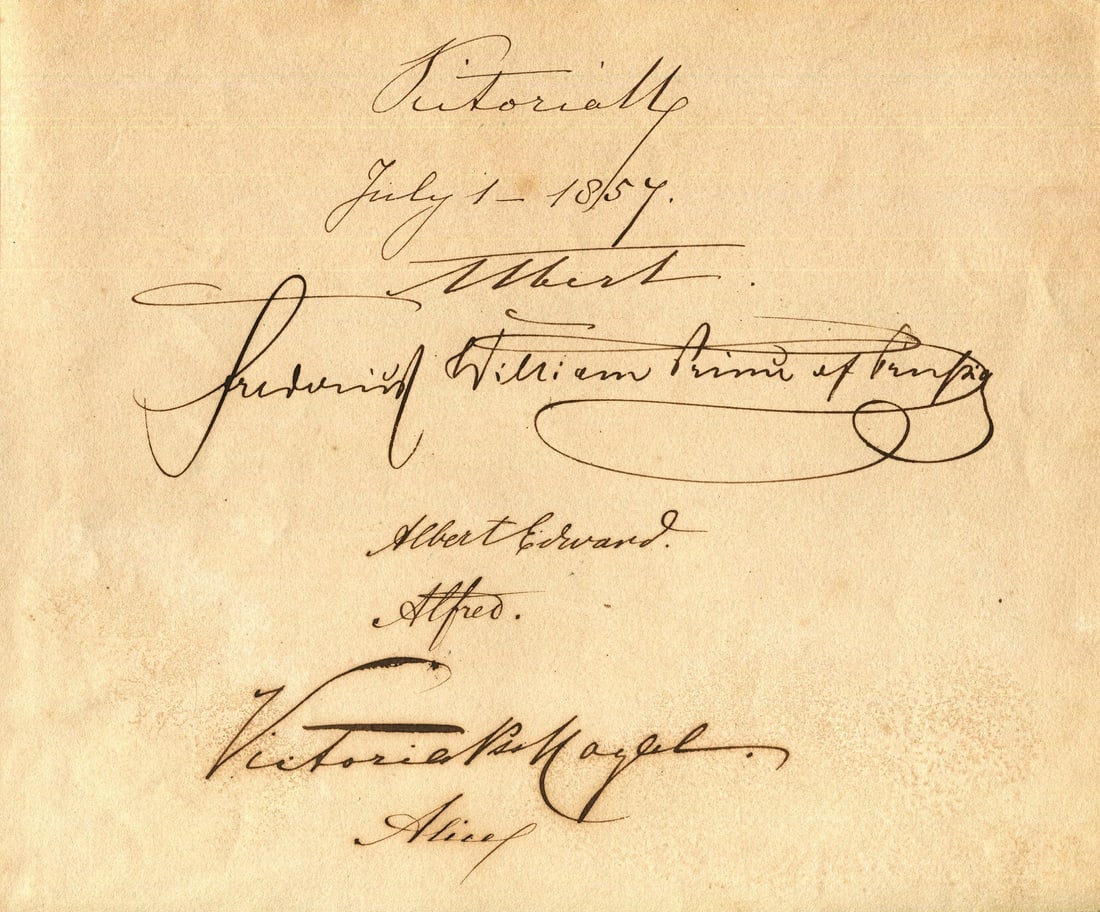 Victoria R
July 1 – 1857.
Albert.
Frederick William Prince of Prussia
Albert Edward.
Alfred.
Victoria Pss Royal.
Alice